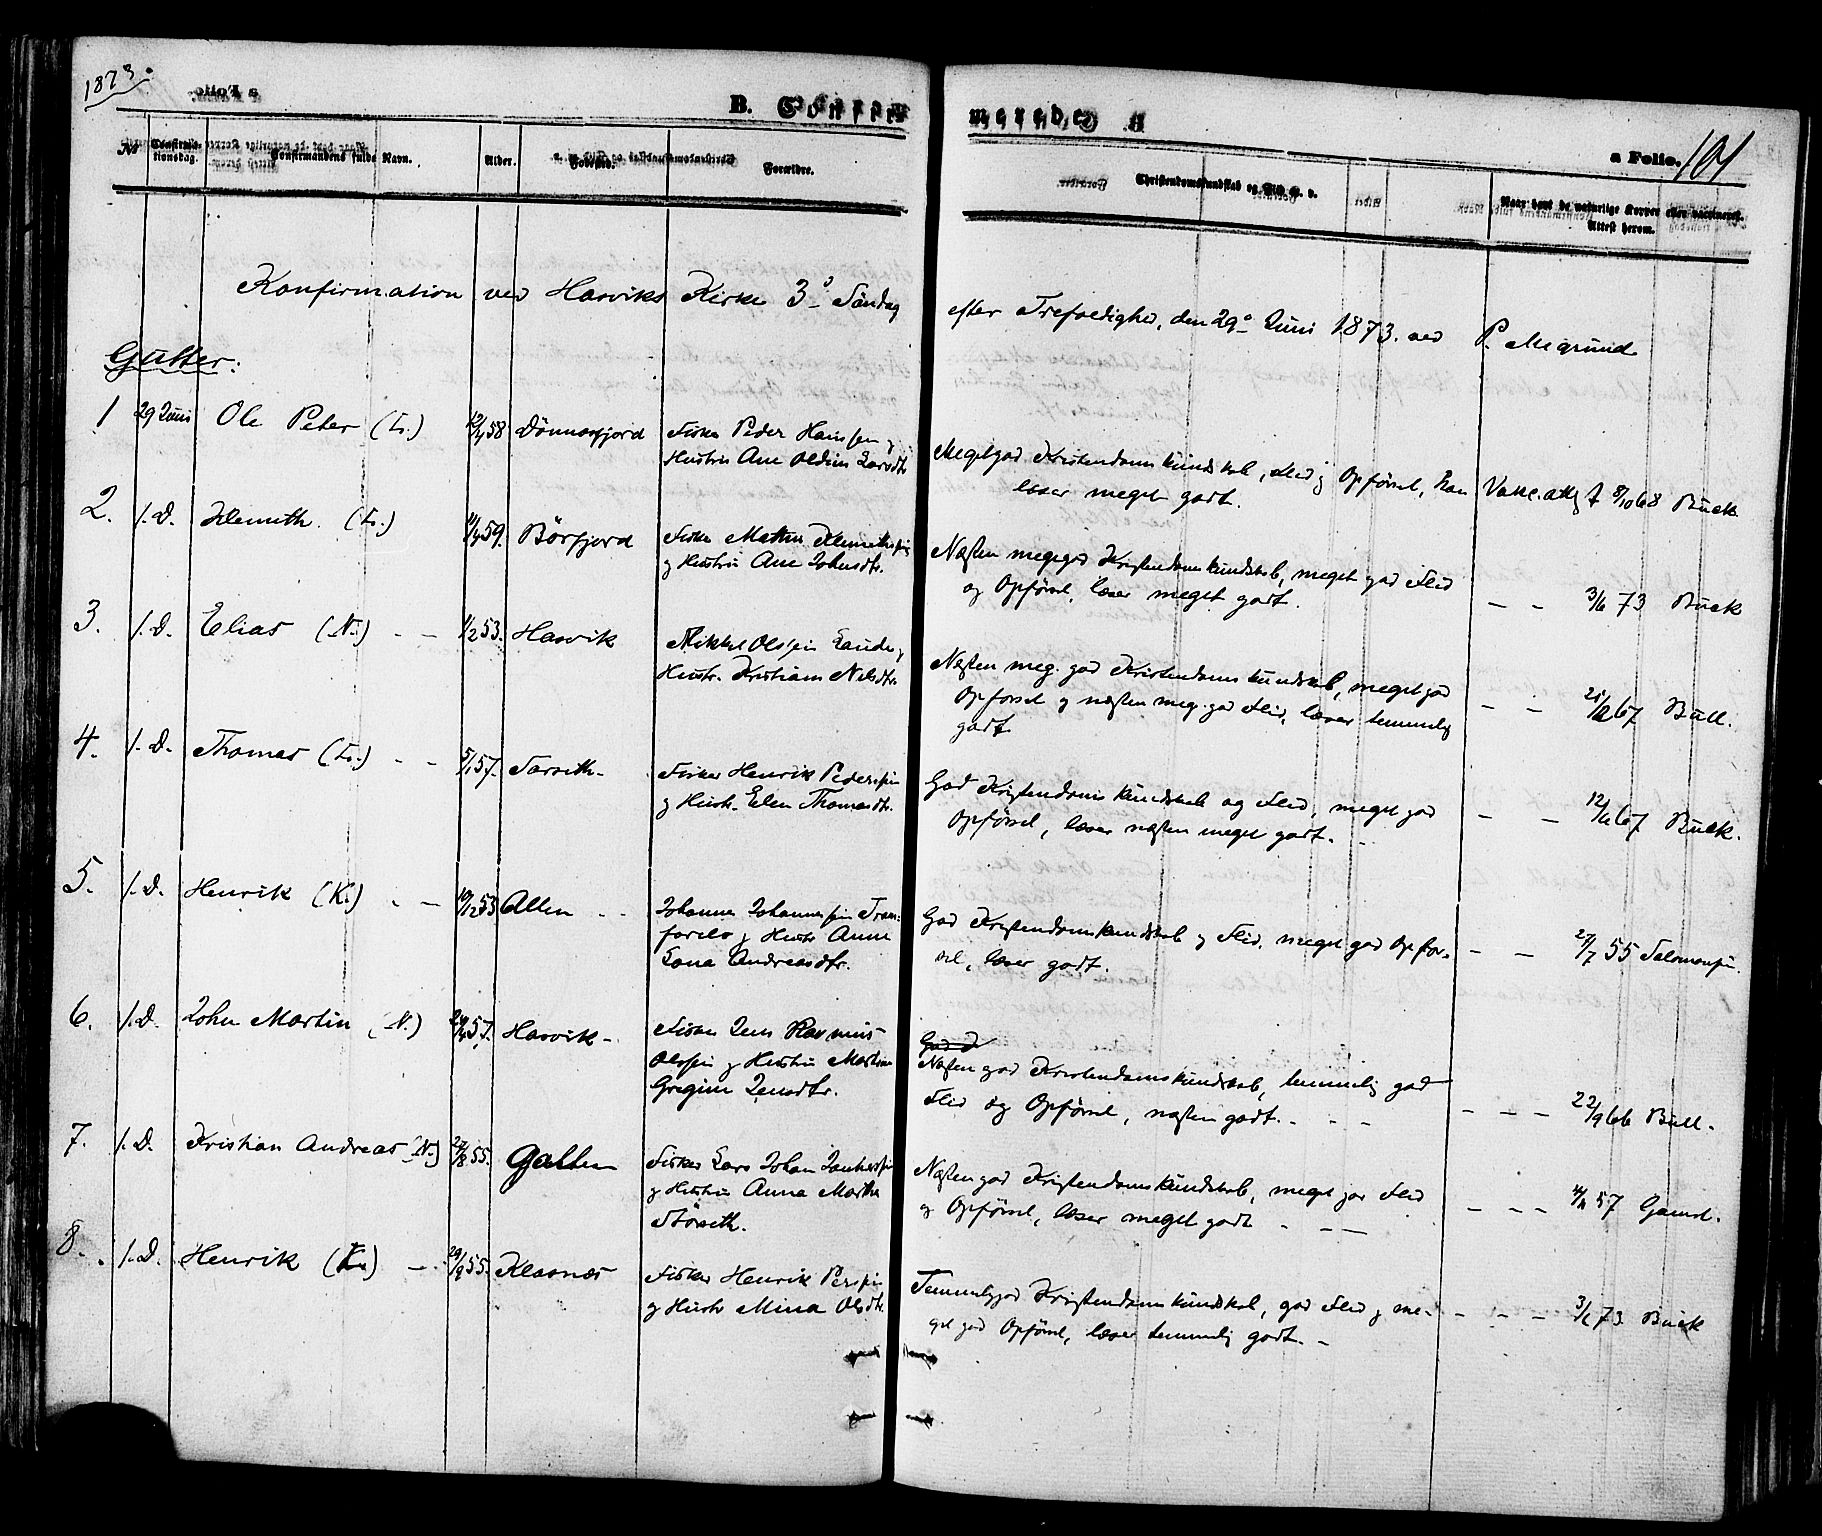 1873.
a Folio. 101
B. Confirmerede.
No
Confirmationsdag.
Confirmandens fulde Navn.
Alder.
Bosted.
Forældre.
Christendomskundskab og Flid o. s. v.
Naar havt de naturlige Kopper eller vaccineret. Attest herom.
Konfirmation ved Hasviks Kirke 3die Söndag efter Trefoldighed, den 29de Juni 1873. ved P. Megrund
Gutter:
1 29 Juni Ole Peter (L.) 12/4 58 Dönnesfjord
Fisker Peder Hansen &
Hustru Ane Oldine Larsdtr
Megetgod Kristendomskundskab, Flid & Opförsel, han
læser meget godt.
Vakc. att. 8/10 68 Buck
2. s. D. Klemeth (L.) 59. Börfjord
Fisker Klemethsen
& Hustru Ane Johnsdtr.
Næsten meg. god Kristendomskundskab, meget god Flid
og Opförsel, læser meget godt.
— — 3/6 73 Buck
3. s. D. Elias (N.) - — 1/2 53. Hasvik
Mikkel Olssen &
Hustr. Kristiane Nilsdtr.
Næsten meg. god Kristendomskundskab, meget god
Opforsel & næsten meg. god Flid, læser temmelig
godt
— — 67 Bull.
4. s. D. Thomas (L.) - — 5/1 57.
Fisker Henrik Pedersen
& Hustr. Elen Thomasdtr.
God Kristendomskundskab og Flid, meget god
Opförsel, læser næsten meget godt. -
— — 12/6 67 Buck.
5. s. D. Henrik (K.) - — 19/12 53 Alten - -
Johannes Johannessen
& Hustr Anne
Lona Andreasdtr.
God Kristendomskundskab & Flid, meget god Opfor-
sel, læser godt.
— — 27/7 55 Salomonsen.
6. s. D. John Martin (N.) 57. Hasvik -
Fisker Jens Rasmus
Olssen & Hustru
Gregine Jensdtr.
God
Næsten god Kristendomskundskab, temmelig god
Flid og Opförsel, næsten godt. - - -
— — — 22/9 66 Bull.
7. s. D. Kristian Andreas (N.) 27/8 55. Galten
Fisker Lars Johan
& Hustru Anna Martha
Næsten god Kristendomskundskab, meget god Flid
& Opförsel, læser meget godt - — —
— — — 57
8. s. D. Henrik — 29/9 55. Klasnæs
Fisker Henrik Perssen
& Hustr Mina Olsdtr.
Temmeliggod Kristendomskundskab, god Flid & me-
get god Opförsel, læser temmelig godt. -
— — — 3/6 73 Buck